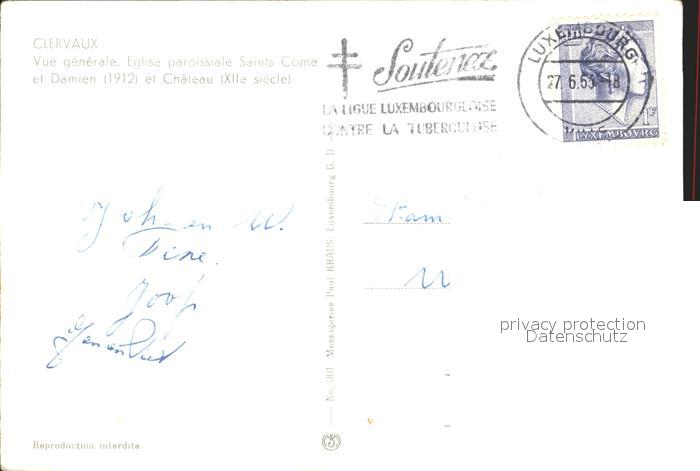 CLERVAUX
Vue générale. Eglise paroissiale Saints Come
et Damien (1912) et Château (XIIe siècle)
Soutenez
LA LIGUE LUXEMBOURGEOISE
CONTRE LA TUBERCULOSE
LUXEMBOURG
27. 6. 63 - 18
1F
LUXEMBOURG
No. 301 Messageries Paul KRAUS, Luxembourg G. D.
Joh. en W.
Tine.
Joop
privacy protection
Datenschutz
Reproduction interdite